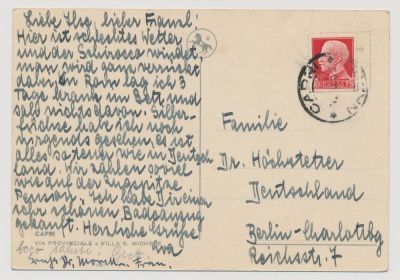 Liebe Ilse, lieber Franzl!
Hier ist schlechtes Wetter
und der Schirocco windet,
man wird ganz verrückt
dabei. In Rom lag ich 3
Tage krank im Bett und
sah nichts davon. Silber-
füchse habe ich noch
nirgends gesehen, es ist
alles so teuer wie in Deutsch
land. Wir zahlen soviel
wie auf der Zugspitze
Pension. Ich habe Dir einen
sehr schönen Badeanzug
gekauft. Herzliche Grüße
Eva
CAPRI
VIA PROVINCIALE E VILLA S. MICHELE
Familie
Dr. Höchstetter
Deutschland
Berlin-Charlottbg
Reichsstr. 7
CAPRI